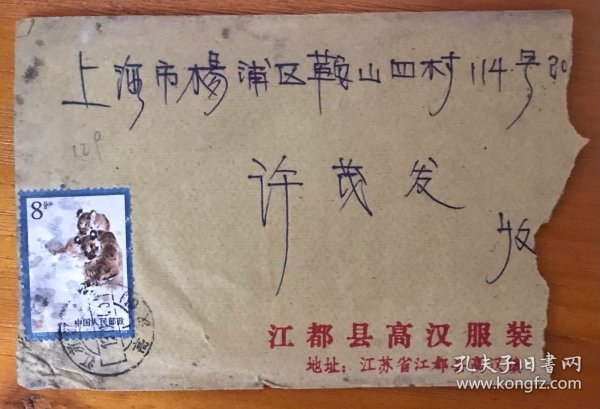 上海市杨浦区鞍山四村114号20
129
许茂发
收
8分
中国人民邮政
江都县高汉服装
地址：江苏省江都
孔夫子旧书网
www.kongfz.com